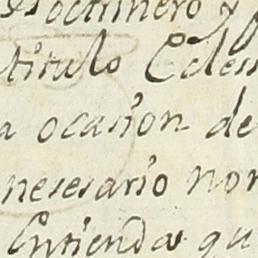 doctrinero y
titulo Coless
a ocasion de
nesesario nom
Entienda qu